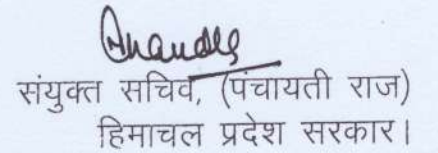 संयुक्त सचिव, (पंचायती राज)
हिमाचल प्रदेश सरकार।